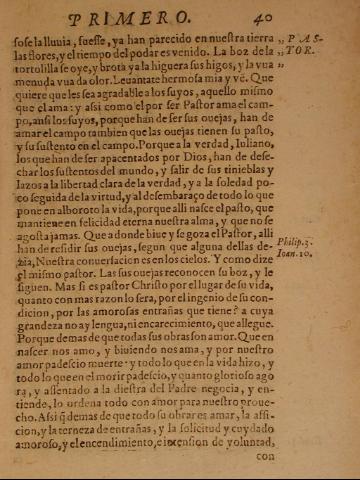 PRIMERO. 40
fose la lluuia, fuesse, ya han parecido en nuestra tierra ,, PAS-
las flores, y el tiempo del podar es venido. La boz de la ,, TOR.
tortolilla se oye, y brota ya la higuera sus higos, y la vua ,,
menuda vua da olor. Leuantate hermosa mia y vē. Que
quiere que les sea agradable a los suyos, aquello mismo
que el ama: y assi como el por ser Pastor ama el cam-
po, ansi los suyos, porque han de ser sus ouejas, han de
amar el campo tambien que las ouejas tienen su pasto,
y su sustento en el campo. Porque a la verdad, Iuliano,
los que han de ser apacentados por Dios, han de dese-
char los sustentos del mundo, y salir de sus tinieblas y
lazos a la libertad clara de la verdad, y a la soledad po-
co seguida de la virtud, y al desembaraço de todo lo que
pone en alboroto la vida, porque alli nasce el pasto, que
mantiene en felicidad eterna nuestra alma, y que no se
agosta jamas. Que adonde biue y se goza el Pastor, alli
han de residir sus ouejas, segun que alguna dellas de- Philip.3.
zia, Nuestra conuersacion es en los cielos. Y como dize Ioan.10.
el mismo pastor. Las sus ouejas reconocen su boz, y le
siguen. Mas si es pastor Christo por el lugar de su vida,
quanto con mas razon lo sera, por el ingenio de su con-
dicion, por las amorosas entrañas que tiene? a cuya
grandeza no ay lengua, ni encarecimiento, que allegue.
Porque demas de que todas sus obras son amor. Que en
nascer nos amo, y biuiendo nos ama, y por nuestro
amor padescio muerte: y todo lo que en la vida hizo, y
todo lo que en el morir padescio, y quanto glorioso ago
ra, y assentado a la diestra del Padre negocia, y en-
tiende, lo ordena todo con amor para nuestro proue-
cho. Assi q̃ demas de que todo su obrar es amar, la affi-
cion, y la terneza de entrañas, y la solicitud y cuydado
amoroso, y el encendimiento, e intension de voluntad,
con